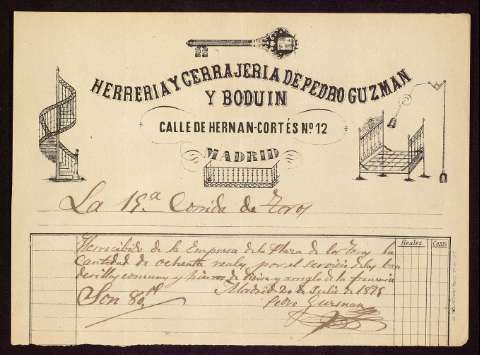 HERRERIA Y CERRAJERIA DE PEDRO GUZMAN
Y BODUIN
CALLE DE HERNAN-CORTÉS Nº 12
MADRID
La 19.ª Corrida de Toros
Reales Cents
He recibido de la Empresa de la Plaza de los Toros la
cantidad de ochenta reales por el servicio de las ban
derillas comunes y
Madrid 20 de Julio de 1878
Son 80
Pedro Guzman